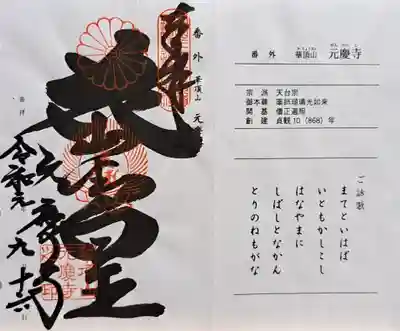 番外 華頂山 元慶寺
奉拝
花山法皇
元慶寺
令和元 九 十六
元慶寺
番外 華頂山 元慶寺
宗派 天台宗
御本尊 薬師瑠璃光如来
開基 僧正遍照
創建 貞観10(868)年
ご詠歌
まてといはば
いともかしこし
はなやまに
しばしとなかん
とりのねもがな